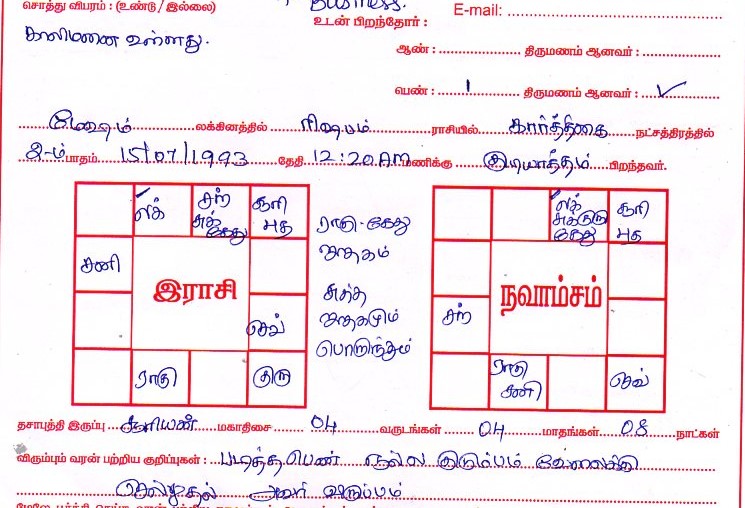 சொத்து விபரம் : (உண்டு / இல்லை) Business. E-mail:
உடன் பிறந்தோர் :
காலிமனை உள்ளது.
ஆண் : திருமணம் ஆனவர் :
பெண் : 1 திருமணம் ஆனவர் : ✓
மேஷம் லக்கினத்தில் ரிஷபம் ராசியில் கார்த்திகை நட்சத்திரத்தில்
2-ம் பாதம் 15/07/1993 தேதி 12:20 AM மணிக்கு குடியாத்தம் பிறந்தவர்.
லக் சந் சுக் கேது சூரி புத
சனி
இராசி
செவ்
ராகு குரு
ராகு-கேது
ஜாதகம்
சுத்த
ஜாதகமும்
பொறுந்தும்
லக் சுக் குரு கேது சூரி புத
நவாம்சம்
சந்
ராகு சனி செவ்
தசாபுத்தி இருப்பு சூரியன் மகாதிசை 04 வருடங்கள் 04 மாதங்கள் 08 நாட்கள்
விரும்பும் வரன் பற்றிய குறிப்புகள் : படித்த பெண் நல்ல குடும்பம் வேலைக்கு
செல்லுதல் விருப்பம்